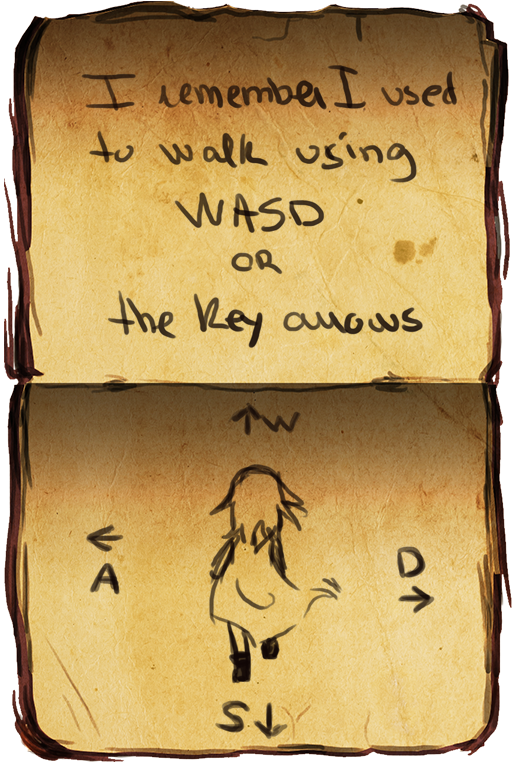 I remember I used
to walk using
WASD
OR
the key arrows
↑W
←
A
D
→
S↓